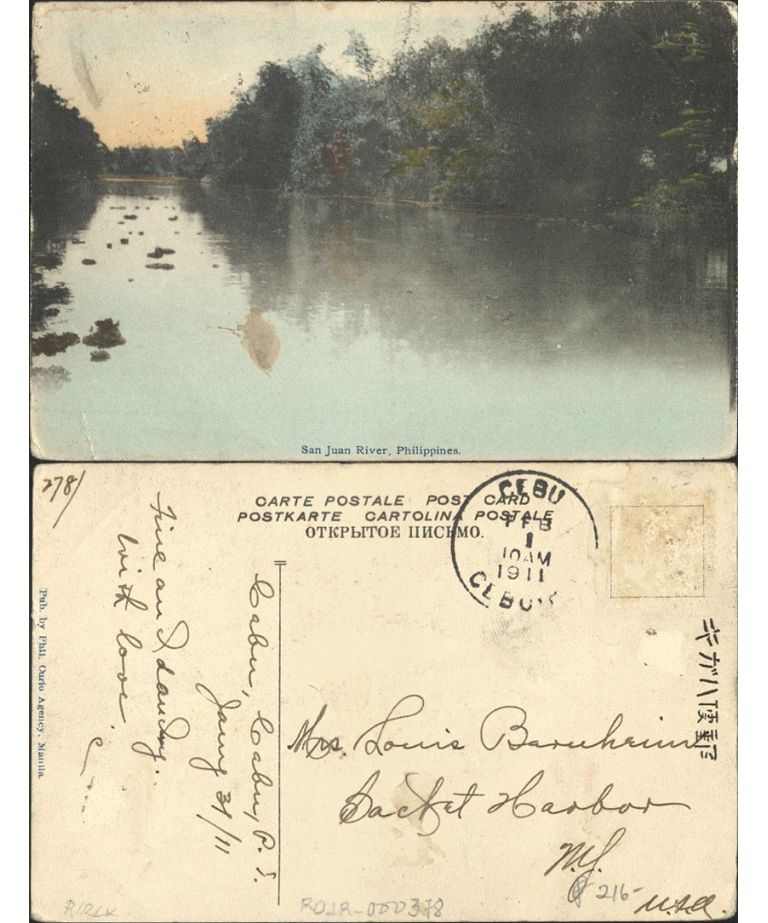 San Juan River, Philippines.
278/
CARTE POSTALE POST CARD
POSTKARTE CARTOLINA POSTALE
ОТКРЫТОЕ ПИСЬМО.
CEBU
FEB
1
10AM
1911
CEBU
キガハ便郵
Pub. by Phil. Curio Agency, Manila.
Fine and dandy..
With love.
Cabu, Cabu, P. I.
Jany 31/11
Mrs. Louis Barnheim
Sacket Harbor
N.Y.
216-
U.S.A.
ROJR-000378